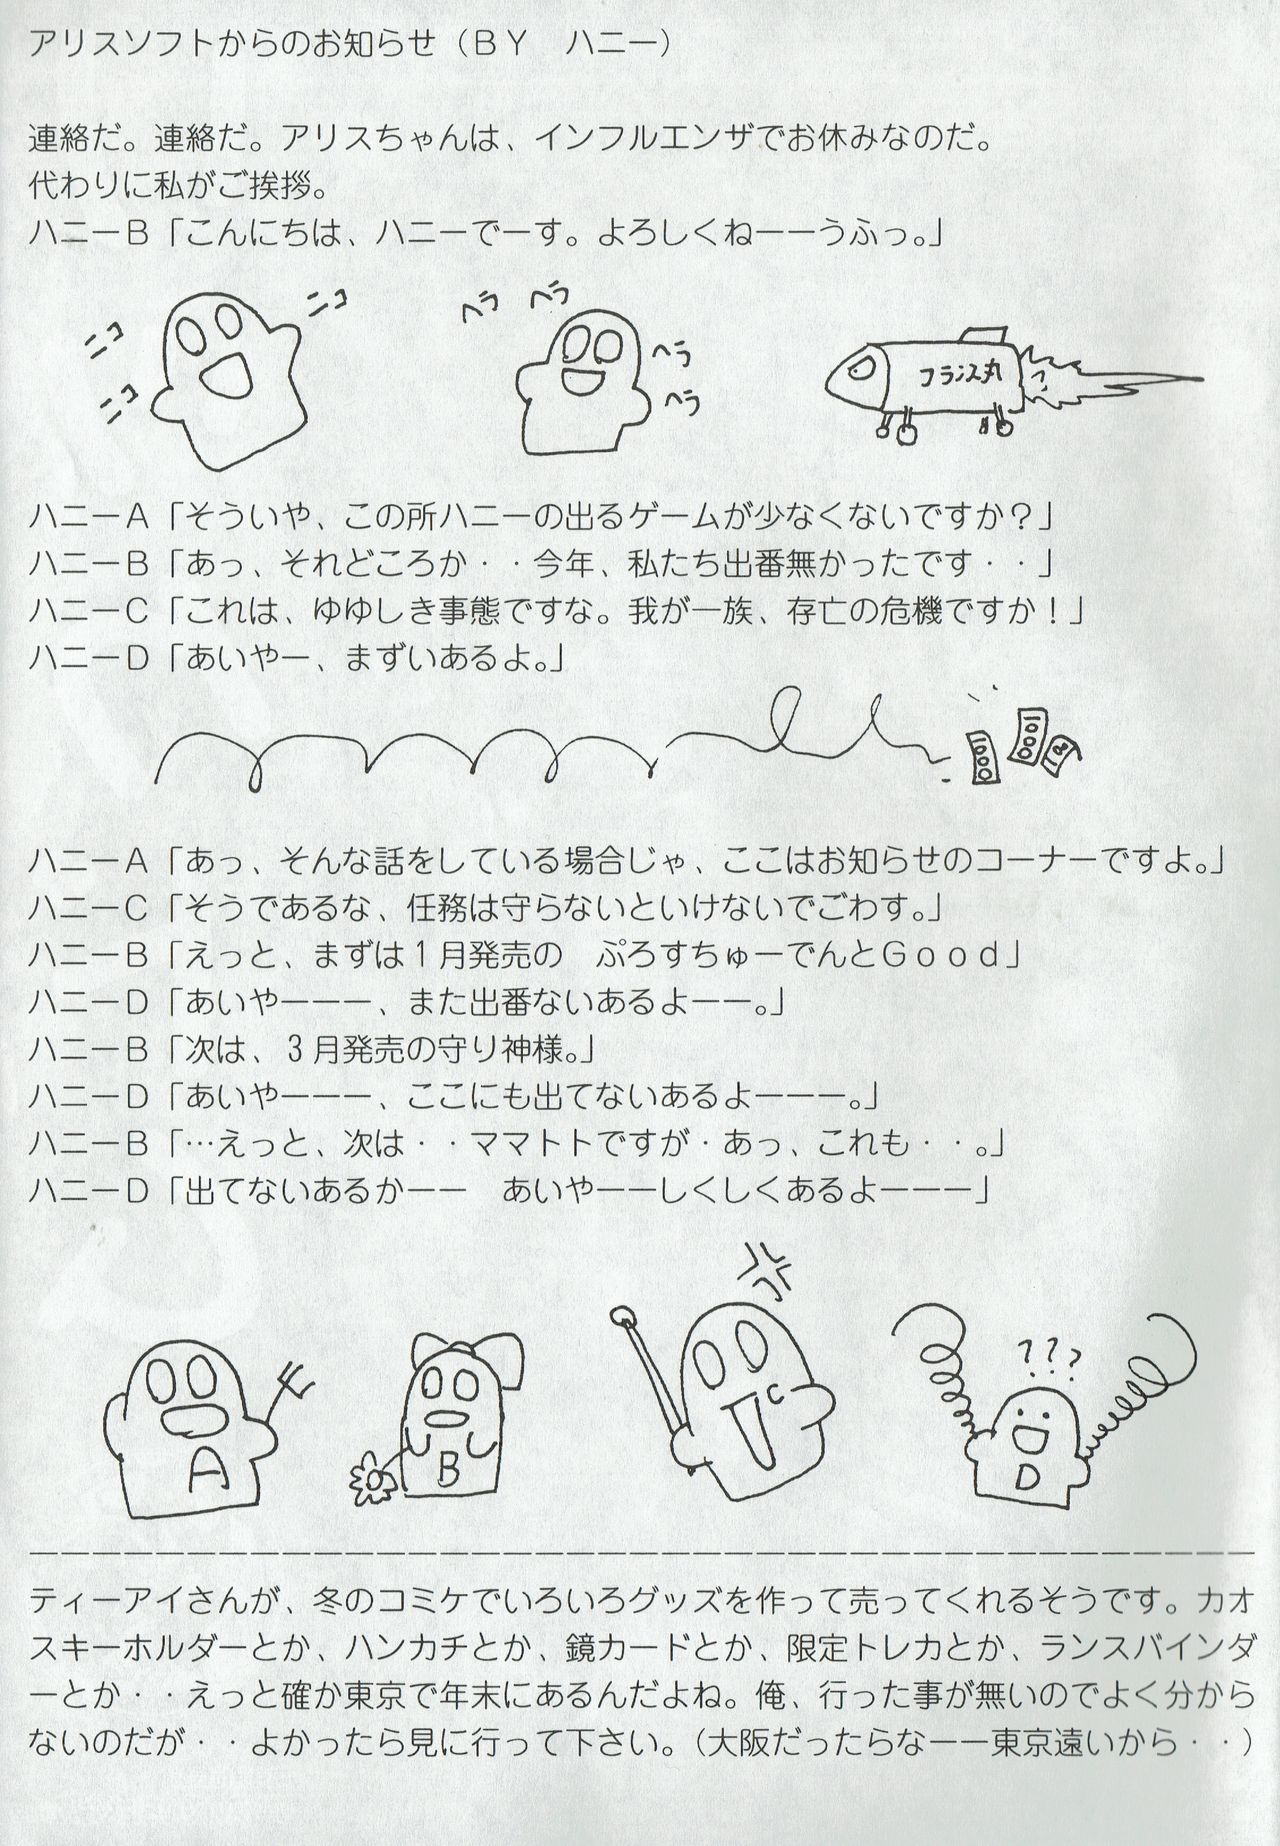 アリスソフトからのお知らせ（ＢＹ　ハニー）
連絡だ。連絡だ。アリスちゃんは、インフルエンザでお休みなのだ。
代わりに私がご挨拶。
ハニーＢ「こんにちは、ハニーでーす。よろしくねーーうふっ。」
ニコ
ニコ
ニコ
ヘラ
ヘラ
ヘラ
ヘラ
フランス丸
ハニーＡ「そういや、この所ハニーの出るゲームが少なくないですか？」
ハニーＢ「あっ、それどころか・・今年、私たち出番無かったです・・」
ハニーＣ「これは、ゆゆしき事態ですな。我が一族、存亡の危機ですか！」
ハニーＤ「あいやー、まずいあるよ。」
1000
1000
ハニーＡ「あっ、そんな話をしている場合じゃ、ここはお知らせのコーナーですよ。」
ハニーＣ「そうであるな、任務は守らないといけないでごわす。」
ハニーＢ「えっと、まずは１月発売の　ぷろすちゅーでんとＧｏｏｄ」
ハニーＤ「あいやーーー、また出番ないあるよーー。」
ハニーＢ「次は、３月発売の守り神様。」
ハニーＤ「あいやーーー、ここにも出てないあるよーーー。」
ハニーＢ「…えっと、次は・・ママトトですが・あっ、これも・・。」
ハニーＤ「出てないあるかーー　あいやーーしくしくあるよーーー」
A
B
C
???
D
ティーアイさんが、冬のコミケでいろいろグッズを作って売ってくれるそうです。カオ
スキーホルダーとか、ハンカチとか、鏡カードとか、限定トレカとか、ランスバインダ
ーとか・・えっと確か東京で年末にあるんだよね。俺、行った事が無いのでよく分から
ないのだが・・よかったら見に行って下さい。（大阪だったらなーー東京遠いから・・）